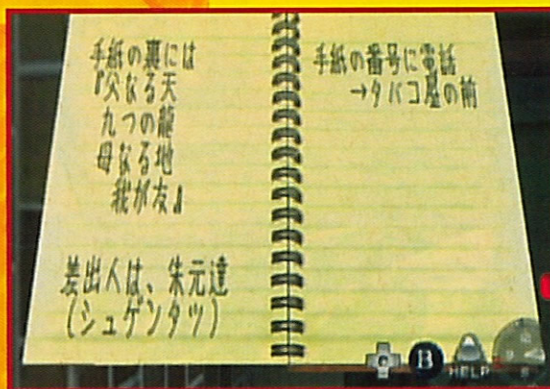 手紙の裏には
『父なる天
九つの龍
母なる地
我が友』
差出人は、朱元達
(シュゲンタツ)
手紙の番号に電話
→タバコ屋の前
B
HELP